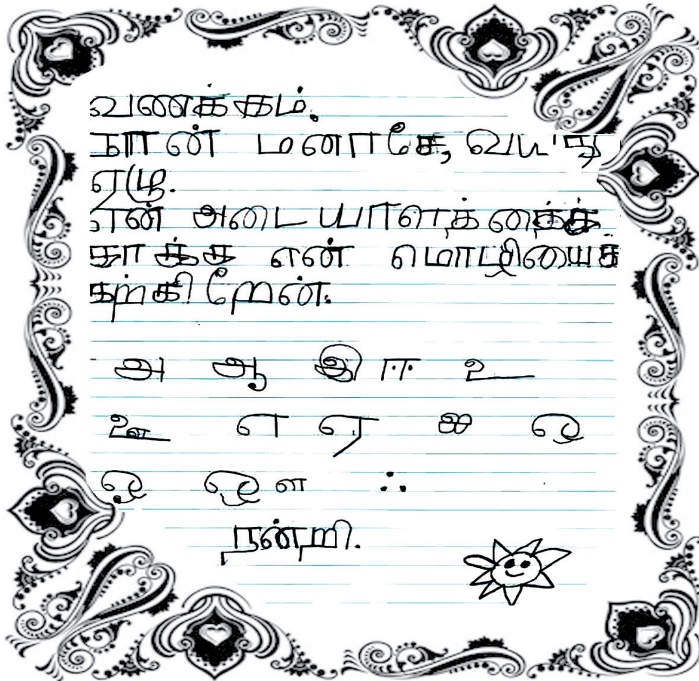 வணக்கம்.
நான் மனாசே, வயது
ஏழு.
என் அடையாளத்தைக்
காக்க என் மொழியைக்
கற்கிறேன்.
அ ஆ இ ஈ உ
ஊ எ ஏ ஐ ஒ
ஓ ஔ ஃ
நன்றி.